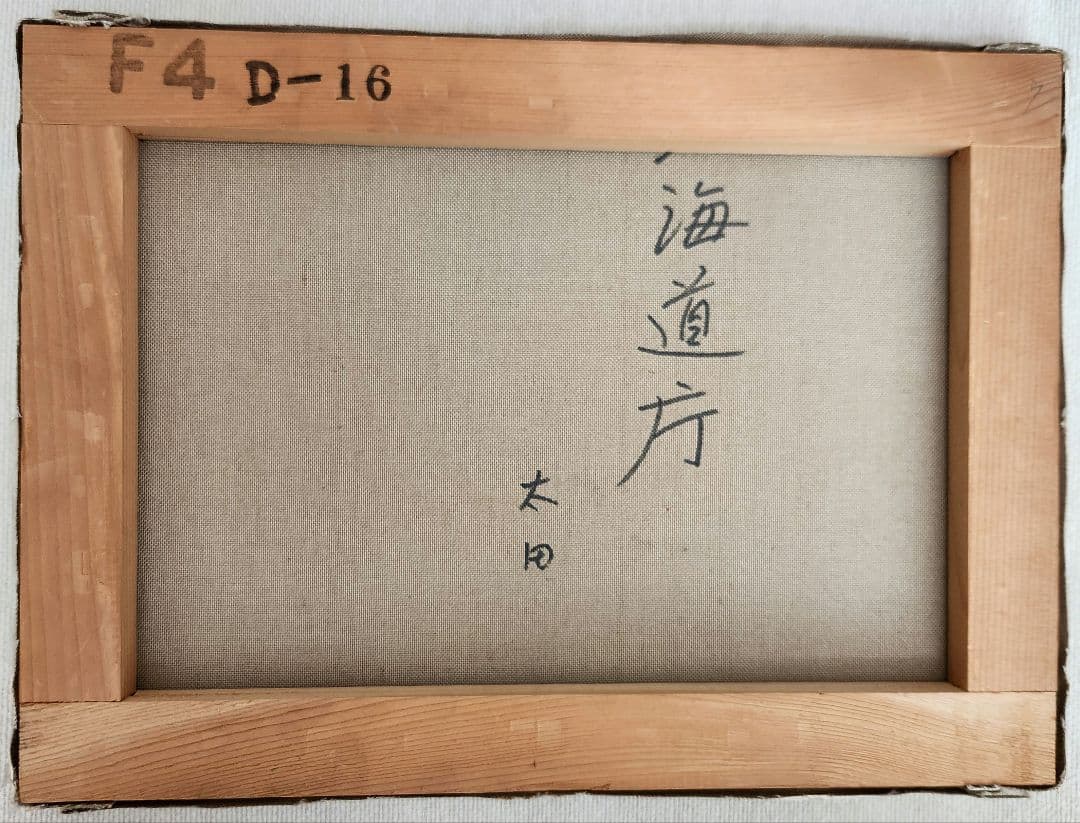 F4 D-16
海道庁
太田